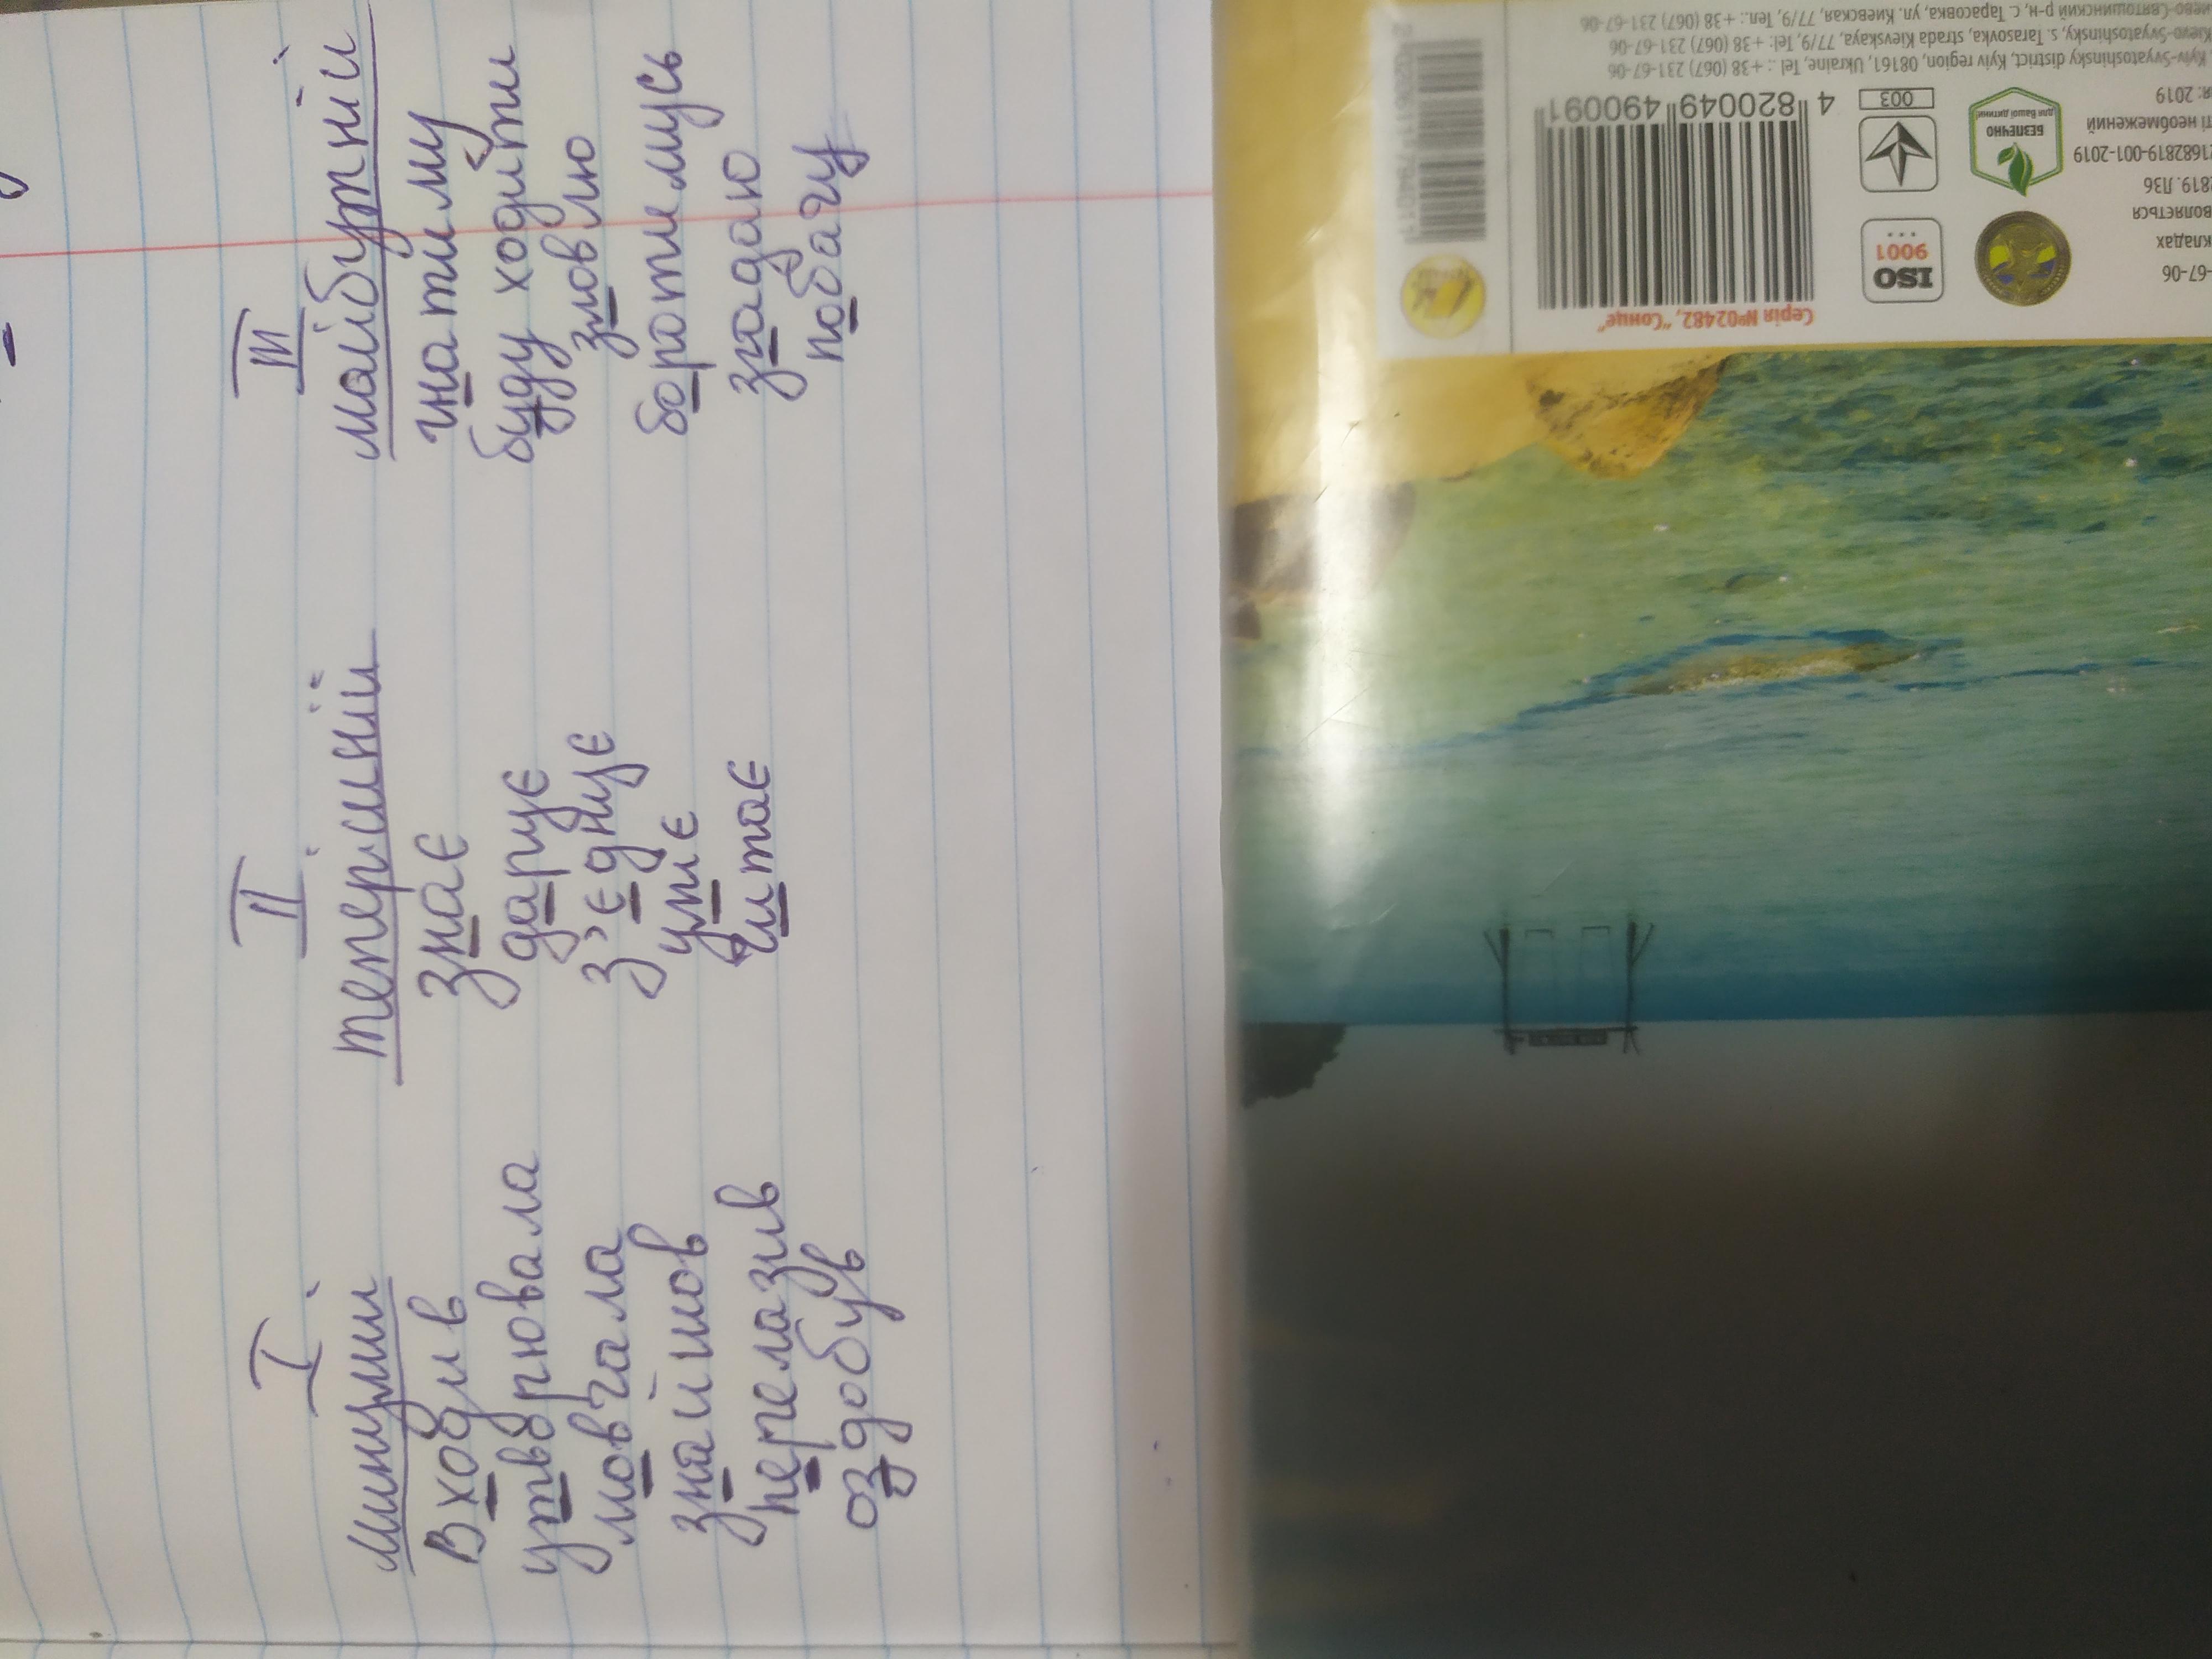 I
минулий
Входив
утворювала
мовчала
знайшов
перелазив
оздобув
II
теперішнії
знає
дарує
з'єднує
уміє
читає
III
майбутній
гнатиму
буду ходити
зловлю
боротимусь
згадаю
побачу
иево-Святошинский р-н, с. Тарасовка, ул. Киевская, 77/9, Тел.: +38 (067) 231-67-06
Kievo-Svyatoshinsky, s. Tarasovka, strada Kievskaya, 77/9, Tel: +38 (067) 231-67-06
Kyiv-Svyatoshinsky district, Kyiv region, 08161, Ukraine, Tel .: +38 (067) 231-67-06
я: 2019
ті необмежений
21682819-001-2019
2819. Л36
воляється
кладах
-67-06
003
4 820049 490091
БЕЗПЕЧНО
для Вашої дитини!
ISO
9001
Серія №02482, "Сонце"